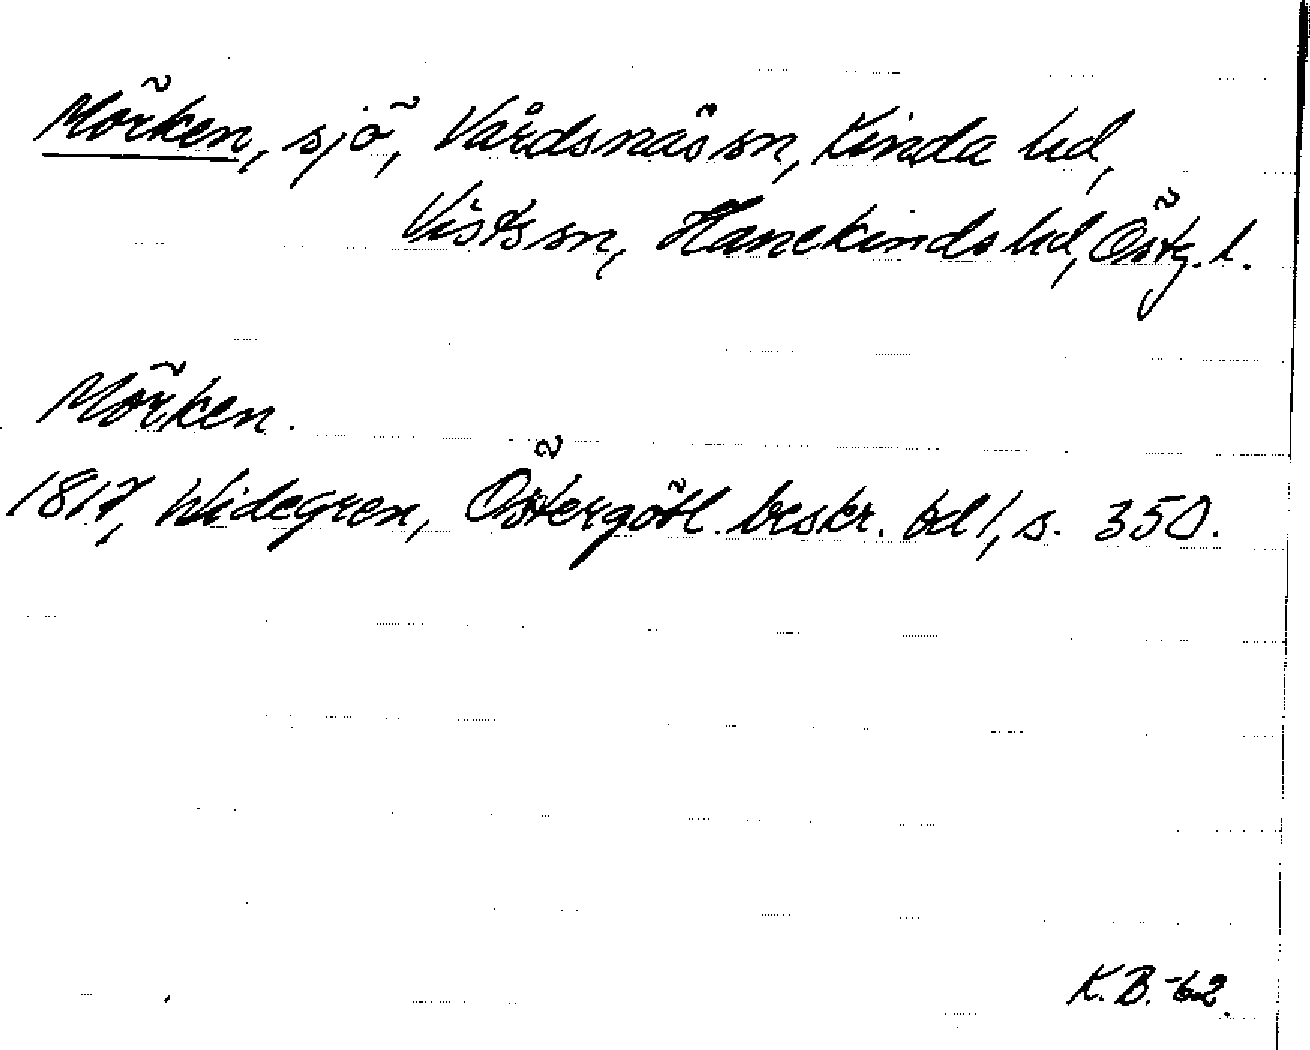 Mörken, sjö, Vårdsnäs sn, Kinda hd,
Vists sn, Hanekinds hd, Östg. l.
Mörken.
1817, Widegren, Östergötl. beskr. bd 1, s. 350.
K.B.-62.